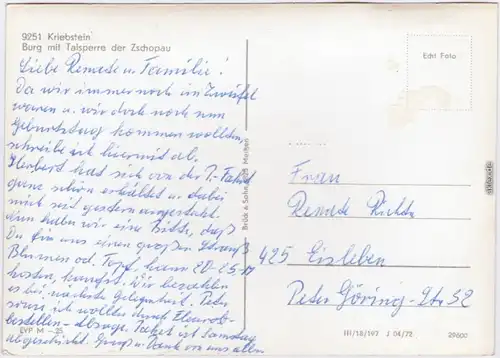 9251 Kriebstein
Burg mit Talsperre der Zschopau
Liebe Renate u. Familie!
Da wir immer noch im Zweifel
waren u. wir doch noch zum
Geburtstag kommen wollten,
schreibe ich hiermit ab.
Herbert hat sich von der T.-Fahrt
ganz schön erkältet u. dabei
mich seit gestern angesteckt.
Nun haben wir eine Bitte, daß
Du für uns einen großen Strauß
Blumen od. Topf, kann 20-25,-M
kosten, kaufst. Wir bezahlen
es bei nächster Gelegenheit.
ich wollte durch Fleurop
bestellen - absage. Paket ist Samstag
abgeschickt. Gruß u. Dank von uns allen
EVP M -,25
Brück & Sohn, KG Meißen
Echt Foto
Frau
Renate Richter
425 Eisleben
Peter Göring-Str. 32
III/18/197 J 04/72 29600